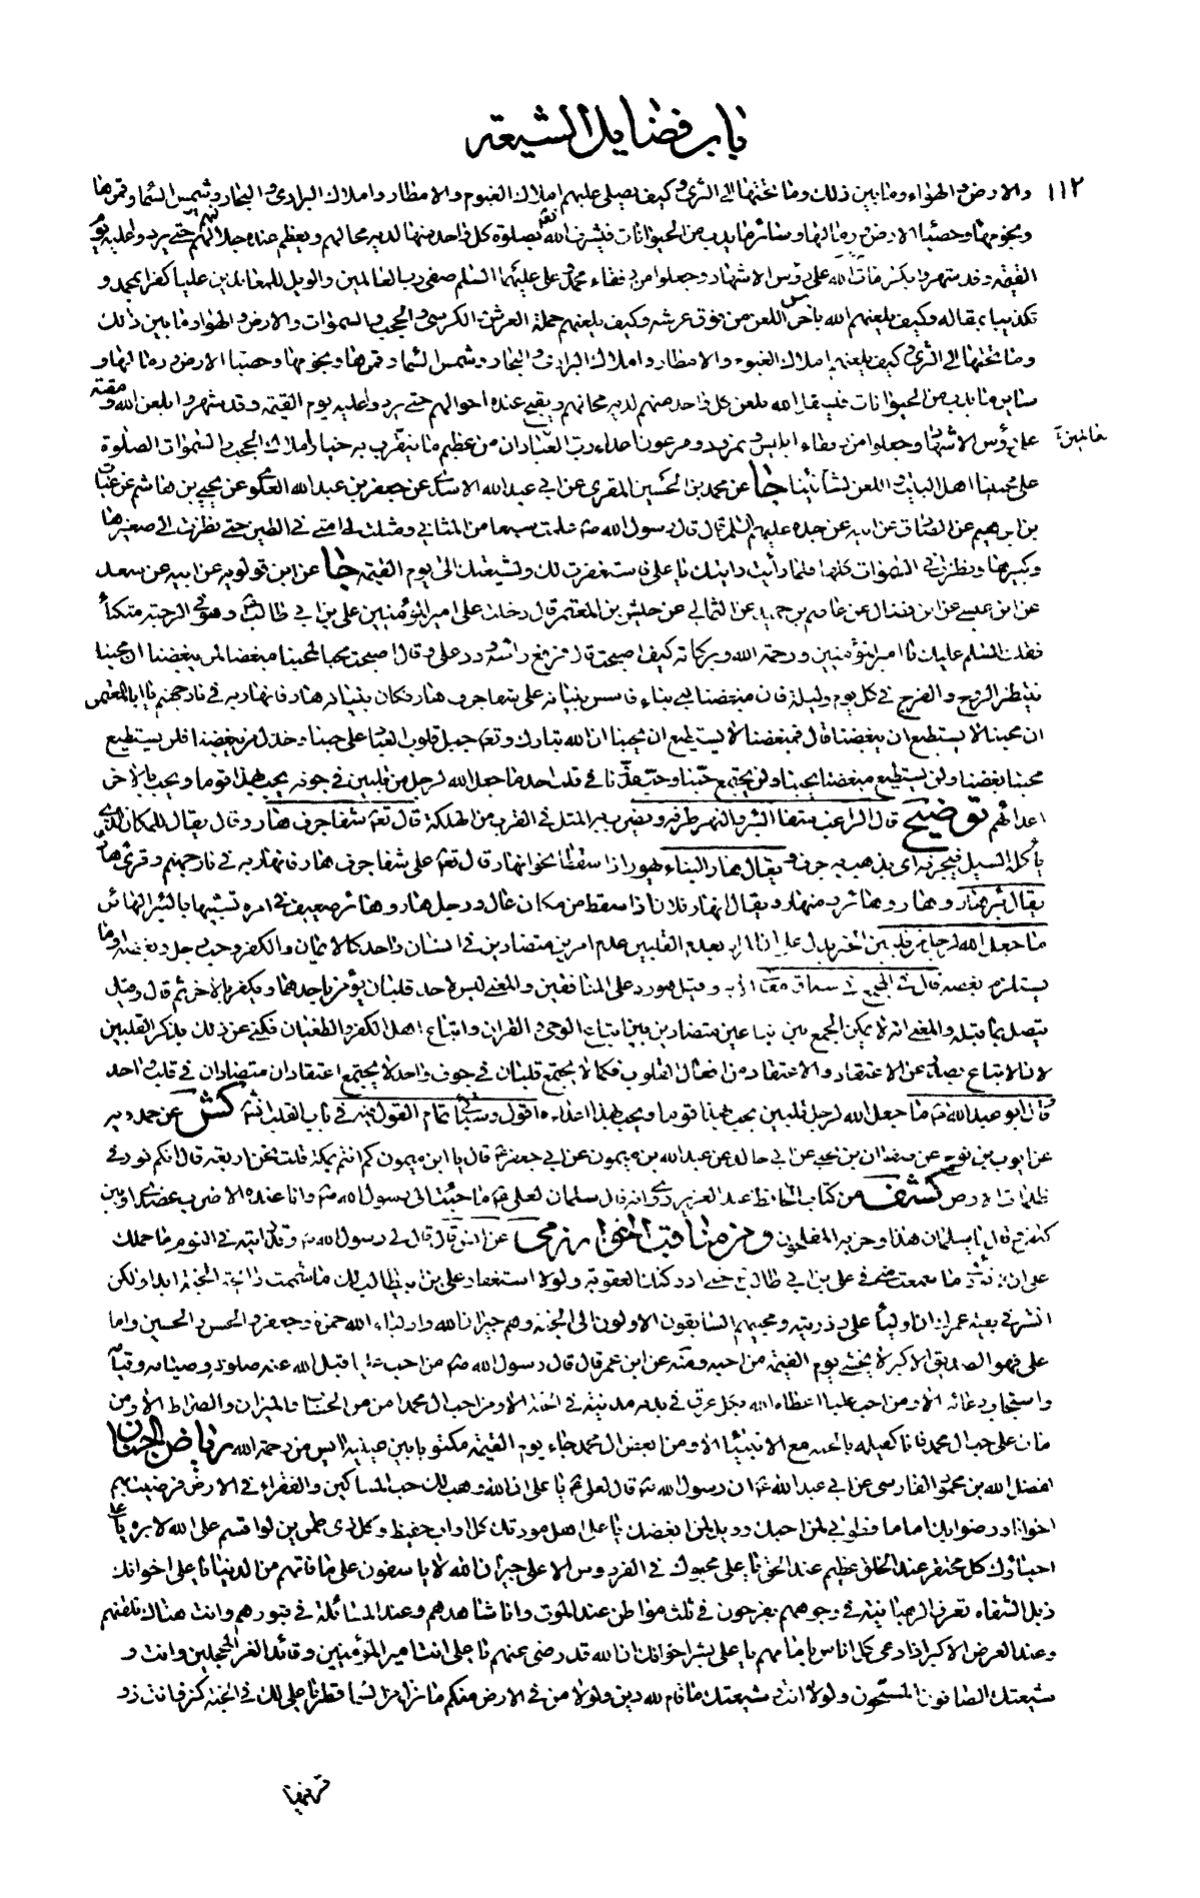 باب فضايل الشيعة
١١٢ والارض والهواء وما بين ذلك وما تحتها الى الثرى وكيف يصلي عليهم املاك الغيوم والامطار واملاك البراري والبحار وشمس السماء وقمرها
ونجومها وحصباء الارض ورمالها وسائر ما يدب من الحيوانات فيشرف الله بصلوة كل واحد منها لديه محالهم ويعظم عنده جلالتهم حتى يردوا عليه يوم
القيمة وقد شهروا بكرامات الله على رؤس الاشهاد وجعلوا من رفقاء محمد وعلي عليهما السلم صفي رب العالمين والويل للمعاندين عليا كفرا بمحمد و
تكذيبا بمقاله وكيف يلعنهم الله باخس اللعن من فوق عرشه وكيف يلعنهم حملة العرش والكرسي والحجب والسموات والارض والهواء وما بين ذلك
وما تحتها الى الثرى وكيف يلعنهم املاك الغيوم والامطار واملاك البراري والبحار وشمس السماء وقمرها ونجومها وحصباء الارض ورمالها و
سائر ما يدب من الحيوانات فيسفل الله بلعن كل واحد منهم لديه محالهم ويقبح عنده احوالهم حتى يردوا عليه يوم القيمة وقد شهروا بلعن الله ومقته
على رؤس الاشهاد وجعلوا من رفقاء ابليس ونمرود وفرعون اعداء رب العباد ان من عظيم ما يتقرب به خيار املاك الحجب والسموات الصلوة
على محبينا اهل البيت واللعن لشانئينا جا عن محمد بن الحسين المقري عن ابي عبد الله الاسدي عن جعفر بن عبد الله العلوي عن يحيى بن هاشم عن غياث
بن ابرهيم عن الصادق عن ابيه عن جده عليهم السلم قال قال رسول الله ص علمت سبعا من المثاني ومثلت لي امتي في الطين حتى نظرت الى صغيرها
وكبيرها ونظرت في السموات كلها فلما رأيت رأيتك يا علي فاستغفرت لك ولشيعتك الى يوم القيمة جا عن ابن قولويه عن ابيه عن سعد
عن ابن عيسى عن ابن فضال عن عاصم بن حميد عن الثمالي عن حنش بن المعتمر قال دخلت على امير المؤمنين علي بن ابي طالب وهو في الرحبة متكأ
فقلت السلم عليك يا امير المؤمنين ورحمة الله وبركاته كيف اصبحت قال فرفع رأسه ورد علي وقال اصبحت محبا لمحبنا مبغضا لمن يبغضنا ان محبنا
ينتظر الروح والفرج في كل يوم وليلة وان مبغضنا بنى بناء فاسس بنيانه على شفا جرف هار فكان بنيانه هار فانهار به في نار جهنم يا ابا المعتمر
ان محبنا لا يستطيع ان يبغضنا قال ومبغضنا لا يستطيع ان يحبنا ان الله تبارك وتعالى جبل قلوب العباد على حبنا وخذل من يبغضنا فلن يستطيع
محبنا بغضنا ولن يستطيع مبغضنا حبنا ولن يجتمع حبنا وحب عدونا في قلب احد ما جعل الله لرجل من قلبين في جوفه يحب بهذا قوما ويحب بالاخر
اعدائهم توضيح قال الراغب شفا البئر والنهر طرفه ويضرب به المثل في القرب من الهلكة قال تعالى شفا جرف هار وقال يقال للمكان الذي
يأكله السيل فيجرفه اي يذهب به جرف ويقال هار البناء يهور اذا سقط نحو انهار قال تعالى على شفا جرف هار فانهار به في نار جهنم وقرئ هار
يقال بئر هار وهار وهائر ومنهار ويقال انهار فلان اذا سقط من مكان عال ورجل هار وهائر ضعيف في امره تشبيها بالبئر الهائر
ما جعل الله لرجل من قلبين الخبر يدل على ان المراد بعدم القلبين عدم امرين متضادين في انسان واحد كالايمان والكفر وحب رجل وبغضه او ما
يستلزم بغضه قال في المجمع في سياق معاني الاية وقيل هو رد على المنافقين والمعنى ليس لاحد قلبان يؤمن باحدهما ويكفر بالاخر ثم قال وقيل
يتصل بما قبله والمعنى انه لا يمكن الجمع بين اتباعين متضادين بين اتباع الوحي والقران واتباع اهل الكفر والطغيان فكنى عن ذلك بذكر القلبين
لان الاتباع يصدر عن الاعتقاد والاعتقاد من افعال القلوب فكما لا يجتمع قلبان في جوف واحد لا يجتمع اعتقادان متضادان في قلب واحد
وقال ابو عبد الله ع ما جعل الله لرجل قلبين يحب بهذا قوما ويحب بهذا اعداءه اقول وسيأتي تمام القول فيه في باب القلب انشاء كش عن حمدويه
عن ايوب بن نوح عن صفوان بن يحيى عن ابي خالد عن عبد الله بن ميمون عن ابي جعفر ع قال يا ابن ميمون كم انتم بمكة قلت نحن اربعة قال انكم نور في
ظلمات الارض كشف من كتاب الحافظ عبد العزيز روى انه قال سلمان لعلي ع ما جئت الى رسول الله ص وانا عنده الا ضرب عضدي او بين
كتفي وقال يا سلمان هذا وحزبه المفلحون ومن مناقب الخوارزمي عن انس قال قال لي رسول الله ص وقد رأيته في النوم ما حملك
على ان لا تؤدي ما سمعت مني في علي بن ابي طالب ع حتى ادركتك العقوبة ولولا استغفار علي بن ابي طالب لك ما شممت رائحة الجنة ابدا ولكن
انشر في بقية عمرك ان اولياء علي وذريته ومحبيهم السابقون الاولون الى الجنة وهم جيران الله واولياء الله حمزة وجعفر والحسن والحسين واما
علي فهو الصديق الاكبر لا يخشى يوم القيمة من احبه ومنه عن ابن عمر قال قال رسول الله ص من احب عليا قبل الله عنه صلوته وصيامه وقيامه
واستجاب دعائه الا ومن احب عليا اعطاه الله بكل عرق في بدنه مدينة في الجنة الا ومن احب ال محمد امن من الحساب والميزان والصراط الا ومن
مات على حب ال محمد فانا كفيله بالجنة مع الانبياء الا ومن ابغض ال محمد جاء يوم القيمة مكتوبا بين عينيه ايس من رحمة الله رياض الجنان
لفضل الله بن محمود الفارسي عن ابي عبد الله ع ان رسول الله ص قال لعلي ع يا علي ان الله وهب لك حب المساكين والفقراء في الارض فرضيت بهم
اخوانا ورضوا بك اماما فطوبى لمن احبك وويل لمن ابغضك يا علي اهل مودتك كل اواب حفيظ وكل ذي طمرين لو اقسم على الله لابره يا علي
احباؤك كل محتقر عند الخلق عظيم عند الحق يا علي محبوك في الفردوس الاعلى جيران الله لا ياسفون على ما فاتهم من الدنيا يا علي اخوانك
ذبل الشفاه تعرف الرهبانية في وجوههم يفرحون في ثلث مواطن عند الموت وانا شاهدهم وعند المسائلة في قبورهم وانت هناك تلقنهم
وعند العرض الاكبر اذا دعي كل اناس بامامهم يا علي بشر اخوانك ان الله قد رضي عنهم يا علي انت امير المؤمنين وقائد الغر المحجلين وانت و
شيعتك الصافون المسبحون ولولا انت وشيعتك ما قام لله دين ولولا من في الارض منكم ما نزل من السماء قطر يا علي لك في الجنة كنز وانت ذو
قرنيها